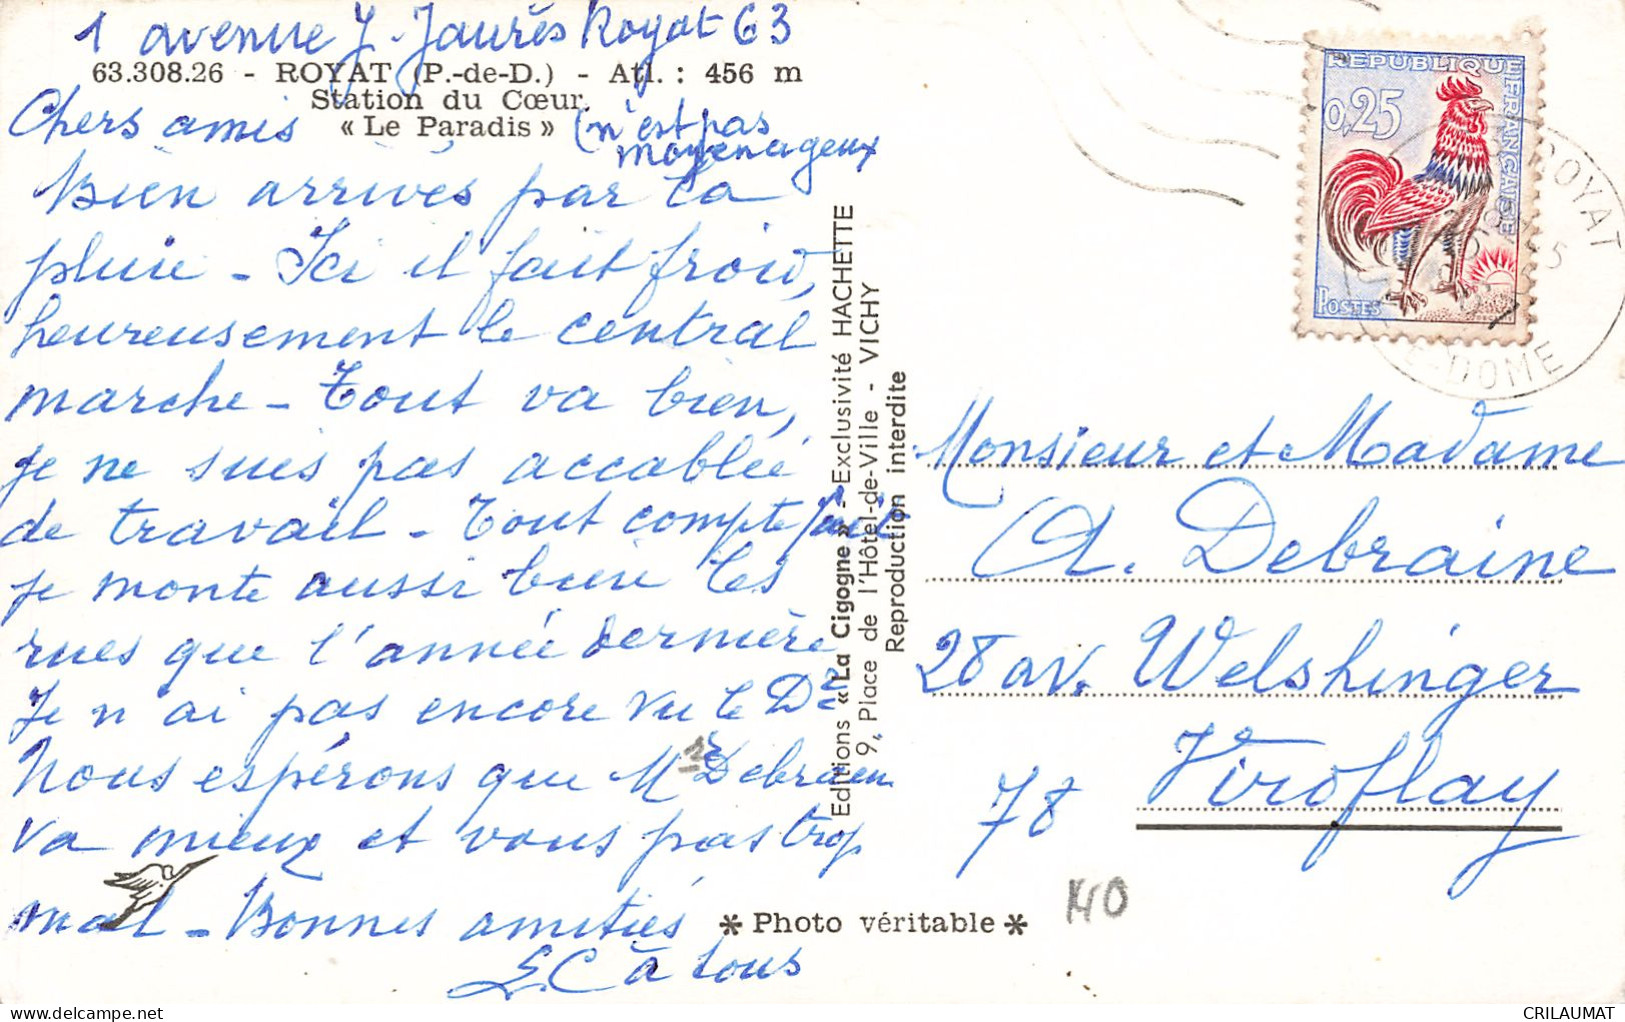 1 avenue J. Jaurès Royat 63
63.308.26 - ROYAT (P.-de-D.) - Atl. : 456 m
Station du Cœur.
« Le Paradis » (n'est pas
moyenageux
Chers amis
Bien arrivés par la
pluie - Ici il fait froid,
heureusement le central
marche - Tout va bien,
je ne suis pas accablée
de travail - Tout compte fait
je monte aussi bien les
rues que l'année dernière
Je n'ai pas encore vu le Dr
Nous espérons que Mr Debraine
va mieux et vous pas trop
mal - Bonnes amitiés
à tous
Editions « La Cigogne » - Exclusivité HACHETTE
9, Place de l'Hôtel-de-Ville - VICHY
Reproduction interdite
* Photo véritable *
REPUBLIQUE FRANÇAISE
0,25
POSTES
ROYAT
DE-DOME
Monsieur et Madame
A. Debraine
28 av. Welshinger
78 Viroflay
140
CRILAUMAT